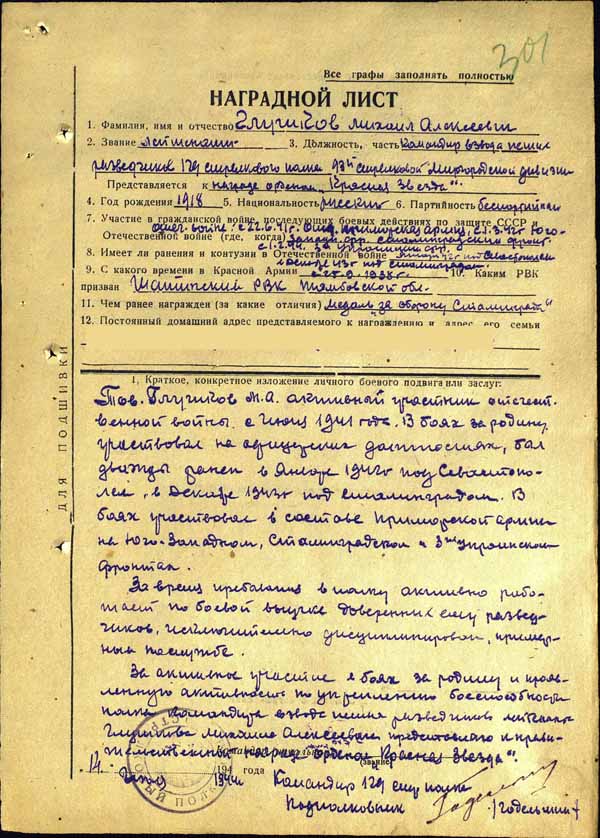 301
Все графы заполнять полностью
НАГРАДНОЙ ЛИСТ
1. Фамилия, имя и отчество Глушков Михаил Алексеевич
2. Звание лейтенант 3. Должность, часть Командир взвода пеших
разведчиков 129 стрелкового полка 93й стрелковой Миргородской дивизии
Представляется к награде орденом „Красная Звезда".
4. Год рождения 1918 5. Национальность русский 6. Партийность беспартийный
7. Участие в гражданской войне, последующих боевых действиях по защите СССР и
отеч. войне с 22.6.41г. Приморская армия, с 1.3.42г Юго-
Отечественной войне (где, когда) Западн. фр. Сталинградский фронт
с 1.2.44. 3й Украинский фр.
8. Имеет ли ранения и контузии в Отечественной войне январь 42г под Севастополем
9. С какого времени в Красной Армии с 25.9.1938г. 10. Каким РВК
призван РВК Тамбовской обл.
11. Чем ранее награжден (за какие отличия) Медаль „за оборону Сталинграда"
12. Постоянный домашний адрес представляемого к награждению и адрес его семьи
ДЛЯ ПОДШИВКИ
1. Краткое, конкретное изложение личного боевого подвига или заслуг.
Тов. М.А. активный участник отечест-
венной войны с Июня 1941 года. В боях за родину
участвовал на офицерских должностях, был
дважды ранен в Январе 1942г под Севастопо-
лем, в Декабре 1942г под Сталинградом. В
боях участвовал в составе Приморской армии
на Юго-Западном, Сталинградском и 3м Украинском
фронтах.
За время пребывания в полку активно рабо-
тает по боевой выучке доверенных ему развед-
чиков, исключительно дисциплинирован, пример-
ный по службе.
За активное участие в боях за родину и прояв-
ленную активность по укреплению боеспособности
полка командира взвода пеших разведчиков лейтенанта
Михаила Алексеевича представляю к прави-
тельственной награде орденом „Красная Звезда".
(звание)
14. 194 года Командир 129 стр полка
Подполковник